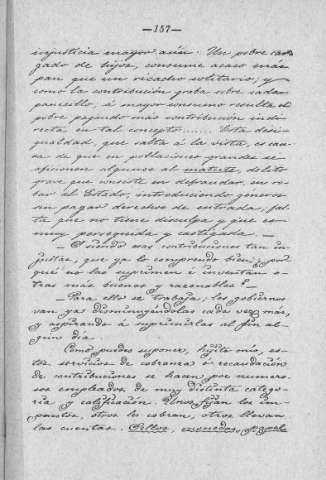 —157—
injusticia mayor aún. Un pobre car-
gado de hijos, consume acaso más
pan que un ricacho solitario; y
como la contribución graba sobre cada
panecillo, á mayor consumo resulta el
pobre pagando más contribución indi-
recta en tal concepto...... Esta desi-
gualdad, que salta á la vista, es cau-
sa de que en poblaciones grandes se
aficionen algunos al matute, delito
grave que consiste en defraudar, en ro-
bar al Estado, introduciendo géneros
sin pagar derechos de entrada, fal-
ta que no tiene disculpa y que es
muy perseguida y castigada.—
—O siendo esas contribuciones tan in-
justas, que ya lo comprendo bien, ¿por
qué no las suprimen é inventan o-
tras más buenas y razonables?—
—Para ello se trabaja; los gobiernos
van ya disminuyéndolas cada vez más,
y aspirando á suprimirlas al fin al-
gun dia.
Como puedes suponer, hijito mio, es-
tos servicios de cobranza ó recaudación
de contribuciones se hacen por numero-
sos empleados de muy distinta catego-
ria y calificación. Unos fijan los im-
puestos, otros los cobran, otros llevan
las cuentas. Sellos, monedas,